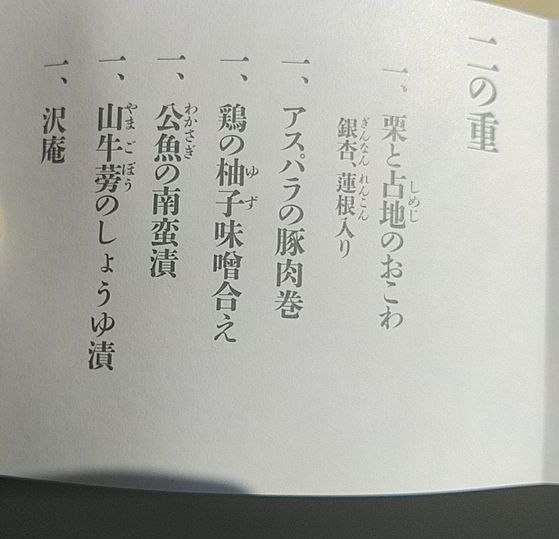 二の重
一、栗と占地のおこわ
しめじ
銀杏、蓮根入り
ぎんなん れんこん
一、アスパラの豚肉巻
一、鶏の柚子味噌合え
ゆず
一、公魚の南蛮漬
わかさぎ
一、山牛蒡のしょうゆ漬
やまごぼう
一、沢庵